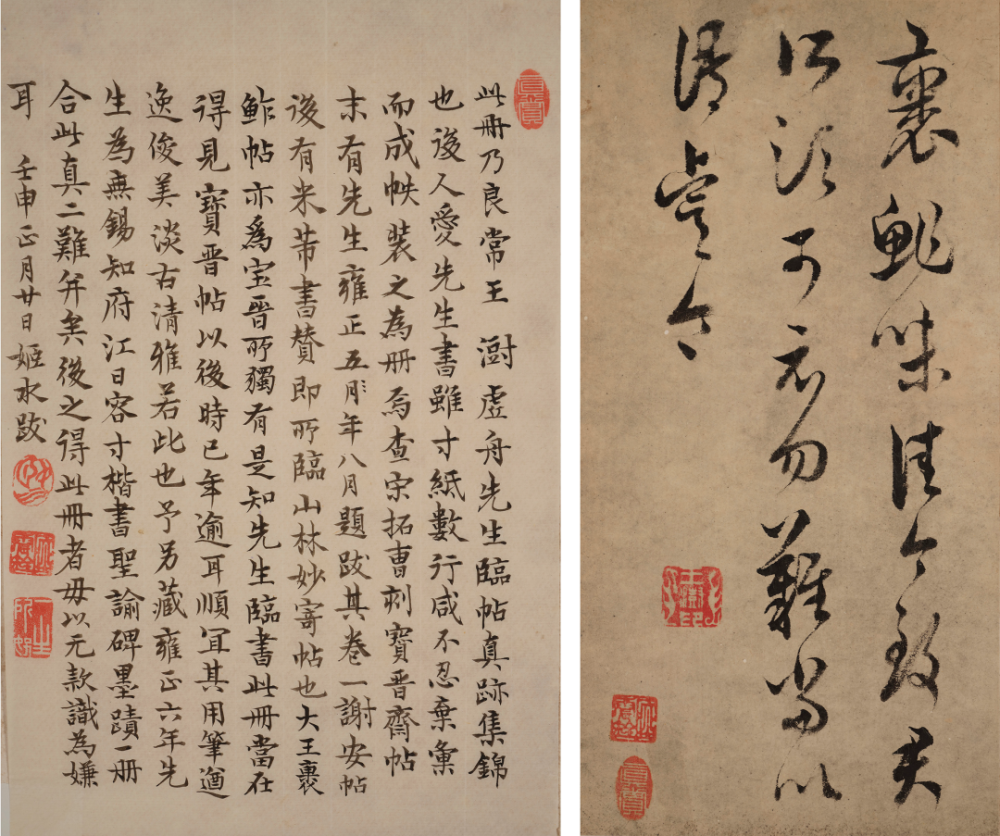 裹鮓味佳今致君
所須可示勿難當以
語虞令
真賞
真賞
此冊乃良常王 澍虛舟先生臨帖真跡集錦
也後人愛先生書雖寸紙數行咸不忍棄彙
而成帙裝之為冊焉查宋拓曹刻寶晉齋帖
末有先生雍正五年八月題跋其卷一謝安帖
後有米芾書贊即所臨山林妙寄帖也大王裹
鮓帖亦爲宝晉所獨有是知先生臨書此冊當在
得見寶晉帖以後時已年逾耳順宜其用筆遒
逸俊美淡古清雅若此也予另藏雍正六年先
生為無錫知府江日容寸楷書聖諭碑墨蹟一冊
合此真二難弁矣後之得此冊者毋以无款識為嫌
耳 壬申正月廿日姬水跋